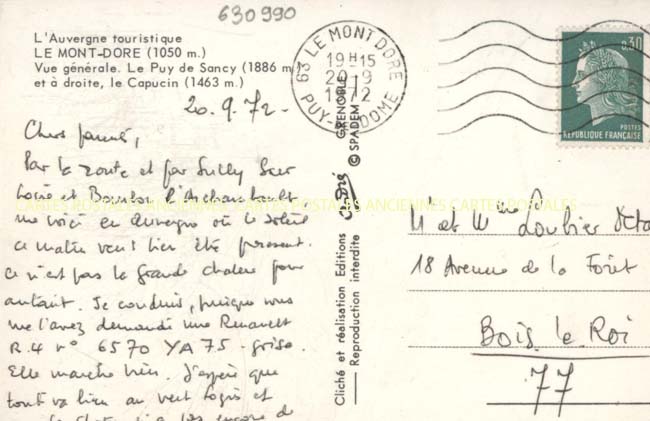 630990
L'Auvergne touristique
LE MONT-DORE (1050 m.)
Vue générale. Le Puy de Sancy (1886 m.)
et à droite, le Capucin (1463 m.)
63 LE MONT DORE
19H15
20-9
1972
PUY-DE-DOME
0,30
POSTES
REPUBLIQUE FRANÇAISE
20.9.72-
Chers
Par la route et par Sully Sur
Loire et Bourbon l'Archambault
me voici en Auvergne où le soleil
ce matin veut bien être présent.
ce n'est pas la grande chaleur pour
autant. Je conduis, puisque vous
me l'avez demandé une Renault
R.4 n° 6570 YA 75 - grise.
Elle marche bien. J'espère que
tout va bien au vert logis et
encore de
CARTES POSTALES ANCIENNES CARTES POSTALES ANCIENNES CARTES POSTALES
Cliché et réalisation Editions
Reproduction interdite
GRENOBLE
© SPADEM
M et Mme Loubier
18 Avenue de la Forêt
Bois le Roi
77